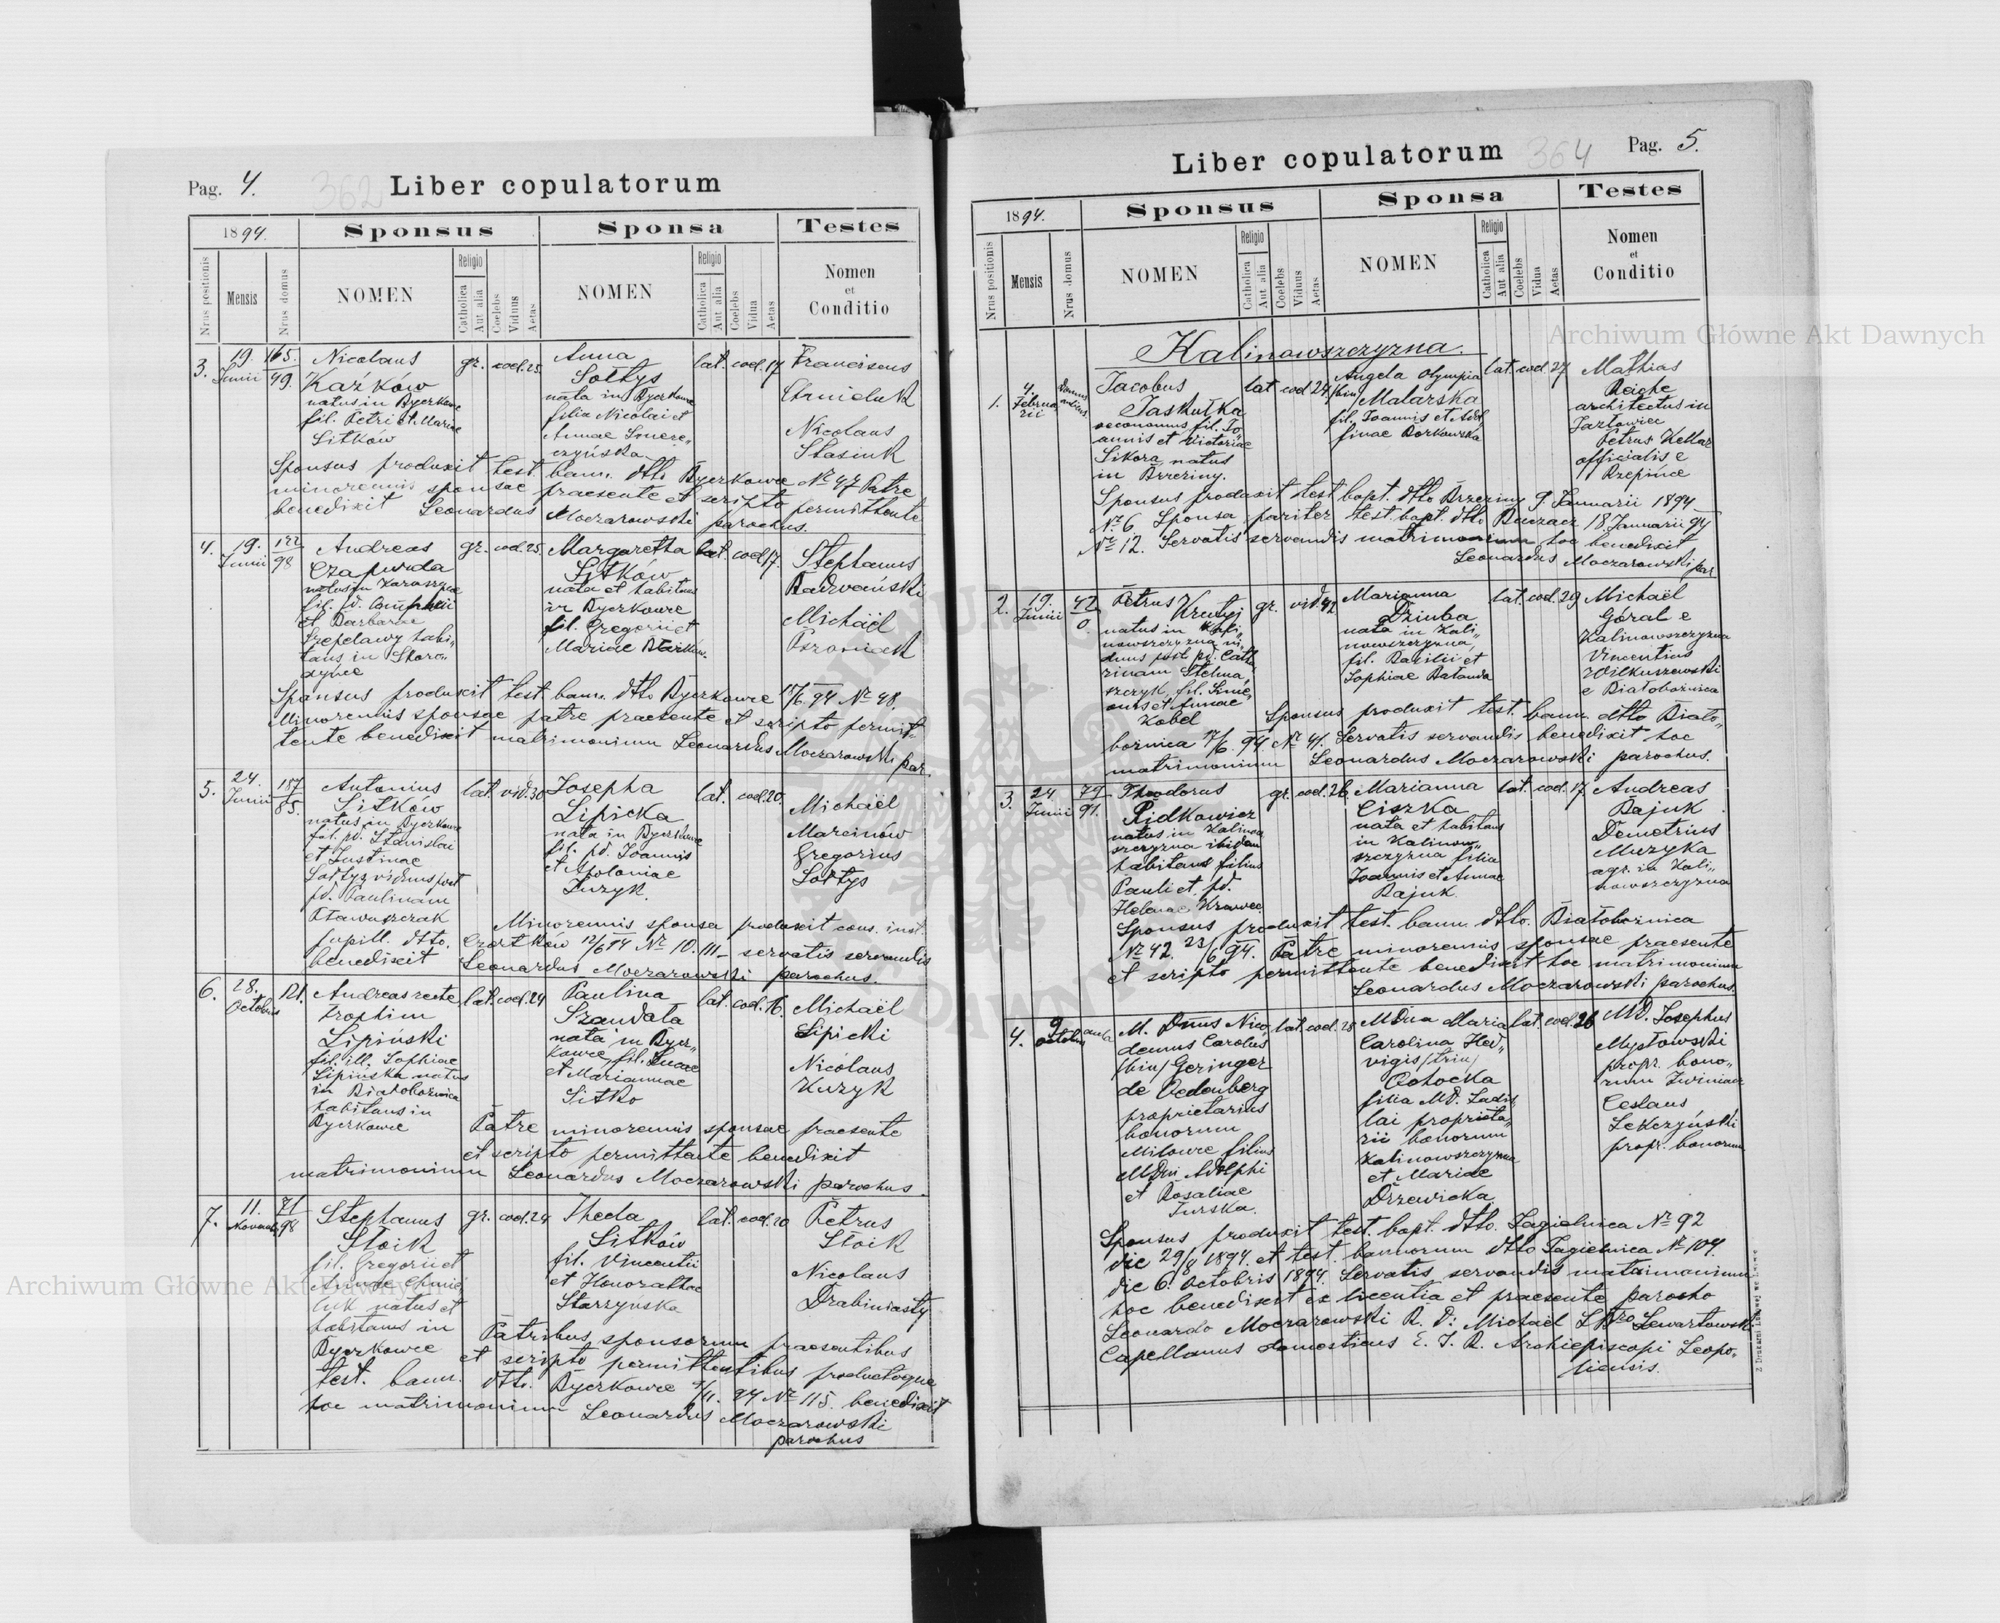 Pag. 4.
362
Liber copulatorum
1894.
Sponsus
Sponsa
Testes
Nrus positionis
Mensis
Nrus domus
NOMEN
Religio
Catholica
Aut alia
Coelebs
Viduus
Aetas
NOMEN
Religio
Catholica
Aut alia
Coelebs
Vidua
Aetas
Nomen
et
Conditio
3.
19.
Junii
165.
49.
Nicolaus
Kaźków
natus in Byczkowce
fil. Petri et Mariae
Sitków
gr. coel. 25.
Anna
Sołtys
nata in Byczkowce
filia Nicolai et
Annae
lat. coel. 17
Franciscus
Nicolaus
Stasiuk
Sponsus produxit test. bann. dtto Byczkowce № 47 Patre
minorennis sponsae praesente et scripto permittente
benedixit Leonardus Moczarowski parochus.
4.
19.
Junii
122
98
Andreas
Czapinda
fil. pd.
et Barbarae
Szepelawy habi-
tans in Skoro-
dyńce
gr. coel. 25.
Margaretha
Sitków
nata et habitans
in Byczkowce
fil. Gregorii et
Mariae
lat. coel. 17.
Stephanus
Radwański
Michaël
Sponsus produxit test. bann. dtto Byczkowce 18/6. 94 № 48.
Minorennis sponsae patre praesente et scripto permit-
tente benedixit matrimonium Leonardus Moczarowski par.
5.
24.
Junii
187
85.
Antonius
Sitków
natus in Byczkowce
fil. pd. Stanislai
et Justinae
Sołtys viduus post
pd. Paulinam
Otawuszczak
lat. vid. 30
Josepha
Lipicka
nata in Byczkowce
fil. pd. Joannis
et Apoloniae
Juzyk.
lat. coel. 20.
Michaël
Marcinów
Gregorius
Sołtys
Minorennis sponsa produxit cons. inst.
pupill. dtto. Czortków 12/6 94 № 10.111 – servatis servandis
benedixit Leonardus Moczarowski parochus.
6.
28.
Octobris
121.
Andreas recte
Trophim
Lipiński
fil. ill. Sophiae
Lipińska natus
in Białobożnica
habitans in
Byczkowce
lat. coel. 24
Paulina
Szandała
nata in Bycz-
kowce fil. Lucae
et Mariannae
Sitko
lat. coel. 16.
Michaël
Lipicki
Nicolaus
Kuzyk
Patre minorennis sponsae praesente
et scripto permittente benedixit
matrimonium Leonardus Moczarowski parochus.
7.
11.
Novembr.
71
98
Stephanus
Stoik
fil. Gregorii et
natus et
habitans in
Byczkowce
gr. coel. 24
Thecla
Sitków
fil. Vincentii
et Honorathae
Starzyńska
lat. coel. 20
Petrus
Stoik
Nicolaus
Drabiniasty
Patribus sponsorum praesentibus
et scripto permittentibus productoque
test. bann. dtto. Byczkowce 9/11. 94 № 115. benedixit
hoc matrimonium Leonardus Moczarowski
parochus
Pag. 5.
364
Liber copulatorum
1894.
Sponsus
Sponsa
Testes
Nrus positionis
Mensis
Nrus domus
NOMEN
Religio
Catholica
Aut alia
Coelebs
Viduus
Aetas
NOMEN
Religio
Catholica
Aut alia
Coelebs
Vidua
Aetas
Nomen
et
Conditio
Kalinowszczyzna.
1.
4.
Februa-
rii
Jacobus
Jaskułka
oeconomus fil. Jo-
annis et Victoriae
Sikora natus
in Brzeziny.
lat coel 24
Angela Olympia
/bin/ Malarska
fil. Joannis et Adol-
finae Borkowska
lat. coel. 27
Mathias
Reiche
architectus in
Jazłowiec
Petrus Kellar
officialis e
Rzepińce
Sponsus produxit test. bapt. dtto Brzeziny 9 Januarii 1894
№ 6. Sponsa pariter test. bapt. dtto Buczacz 18. Januarii 94
№ 12. Servatis servandis matrimonium hoc benedixit
Leonardus Moczarowski par.
2.
19.
Junii
42
0.
Petrus
Krutyj
natus in Kali-
nowszczyzna vi-
duus post pd. Catha-
rinam Stelma-
szczyk, fil. Sime-
onis et Annae
Kobel
gr. vid. 42
Marianna
Dziuba
nata in Kali-
nowszczyzna
fil. Basilii et
Sophiae Bałanda
lat. coel. 29
Michaël
Góral e
Kalinowszczyzna
Vincentius
Wilkuszewski
e Białobożnica
Sponsus produxit test. bann. dtto Biało-
bożnica 17/6. 94. № 41. Servatis servandis benedixit hoc
matrimonium Leonardus Moczarowski parochus.
3.
24
Junii
77
91.
Theodorus
Pidkowicz
natus in Kalinow-
szczyzna ibidem
habitans filius
Pauli et pd.
Helenae Krawec.
gr. coel. 26
Marianna
Ciszka
nata et habitans
in Kalinow-
szczyzna filia
Joannis et Annae
Bajuk.
lat. coel. 17
Andreas
Bajuk
Demetrius
Muzyka
agr. in Kali-
nowszczyzna
Sponsus produxit test. bann. dtto. Białobożnica
№ 42. 23/6 94. Patre minorennis sponsae praesente
et scripto permittente benedixit hoc matrimonium
Leonardus Moczarowski parochus.
4.
9
Octobris
aula
M. Dnus Nico-
demus Carolus
/bin/ Geringer
de Oedenberg
proprietarius
bonorum
Milowce filius
MDni Adolphi
et Rosaliae
Turska.
lat. coel. 28
MDna Maria
Carolina Hed-
vigis /trin/
Ochocka
filia MD. Ladis-
lai proprieta-
rii bonorum
Kalinowszczyzna
et Mariae
Drzewicka
lat. coel. 26
MD. Josephus
Mysłowski
propr. bono-
rum Zwiniacz
Ceslaus
Zekczyński
propr. bonorum
Sponsus produxit test. bapt. dtto. Jagielnica № 92
die 29/8 1894. et test. bannorum dtto Jagielnica № 104.
die 6. Octobris 1894. Servatis servandis matrimonium
hoc benedixit ex licentia et praesente parocho
Leonardo Moczarowski R. D: Michaël L. Bro Lewartowski
Capellanus domesticus E. J. R. Archiepiscopi Leopo-
liensis.
Z Drukarni Ludowej we Lwowie
Archiwum Główne Akt Dawnych
Archiwum Główne Akt Dawnych